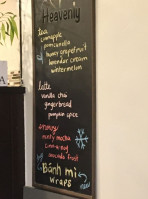 Heavenly
tea
pineapple
guanabana
honey grapefruit
lavender cream
watermelon
latte
vanilla chai
gingerbread
pumpkin spice
minty mocha
avocado fruit
Bánh mì
wraps